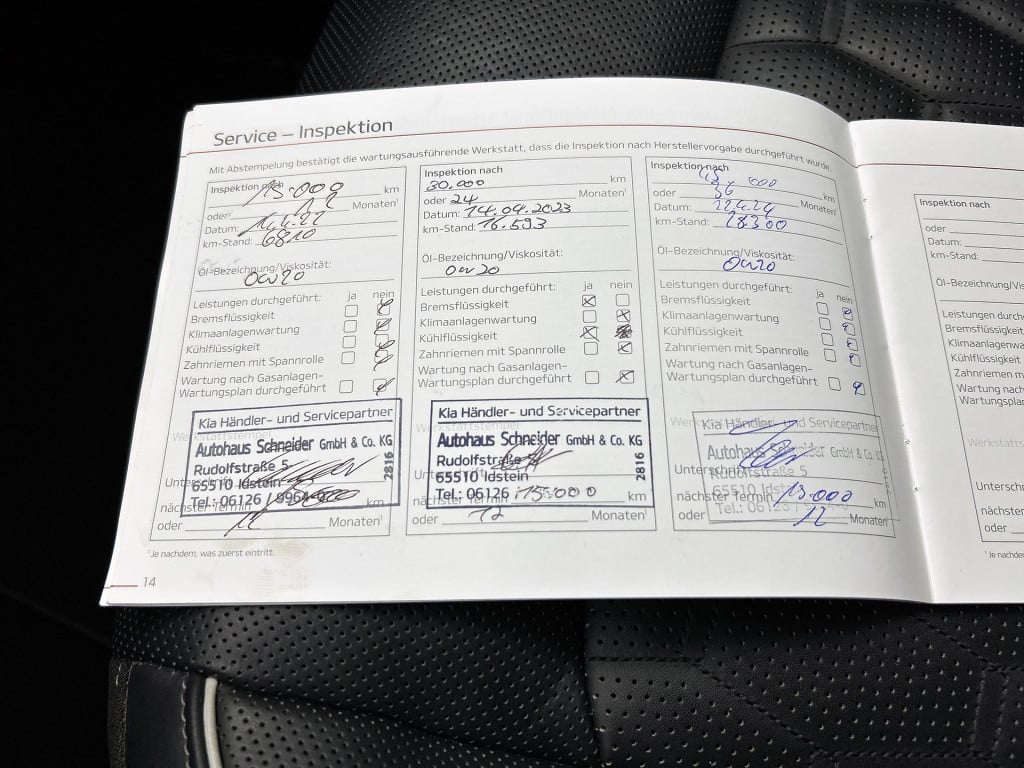 Service – Inspektion
Mit Abstempelung bestätigt die wartungsausführende Werkstatt, dass die Inspektion nach Herstellervorgabe durchgeführt wurde.
Inspektion nach
15.000 km
oder 12 Monaten¹
Datum:
km-Stand: 6810
Öl-Bezeichnung/Viskosität:
0w20
Leistungen durchgeführt: ja nein
Bremsflüssigkeit
Klimaanlagenwartung
Kühlflüssigkeit
Zahnriemen mit Spannrolle
Wartung nach Gasanlagen-
Wartungsplan durchgeführt
Kia Händler- und Servicepartner
Werkstattstempel
Autohaus Schneider GmbH & Co. KG
Rudolfstraße 5
Unterschrift
65510 Idstein
2816
Tel.: 06126 /
nächster Termin km
oder 12 Monaten¹
Inspektion nach
30.000 km
oder 24 Monaten¹
Datum: 14.04.2023
km-Stand: 16.593
Öl-Bezeichnung/Viskosität:
0w20
Leistungen durchgeführt: ja nein
Bremsflüssigkeit
Klimaanlagenwartung
Kühlflüssigkeit
Zahnriemen mit Spannrolle
Wartung nach Gasanlagen-
Wartungsplan durchgeführt
Kia Händler- und Servicepartner
Autohaus Schneider GmbH & Co. KG
Rudolfstraße
65510 Idstein
2816
Tel.: 06126 15.000 km
oder 12 Monaten¹
Inspektion nach
km
oder 36 Monaten¹
Datum: 22.4.24
km-Stand: 28300
Öl-Bezeichnung/Viskosität:
0w20
Leistungen durchgeführt: ja nein
Bremsflüssigkeit
Klimaanlagenwartung
Kühlflüssigkeit
Zahnriemen mit Spannrolle
Wartung nach Gasanlagen-
Wartungsplan durchgeführt
Kia Händler- und Servicepartner
Autohaus Schneider GmbH & Co. KG
Rudolfstraße 5
Unterschrift
65510 Idstein
nächster Termin 15.000 km
Tel.: 06126
oder 12 Monaten¹
¹Je nachdem, was zuerst eintritt.
14
Inspektion nach
oder
Datum:
km-Stand:
Öl-Bezeichnung/Visk
Leistungen durchg
Bremsflüssigkeit
Klimaanlagenwart
Kühlflüssigkeit
Zahnriemen mit
Wartung nach
Wartungsplan
Werkstattst
Unterschri
nächste
oder
¹Je nachdem